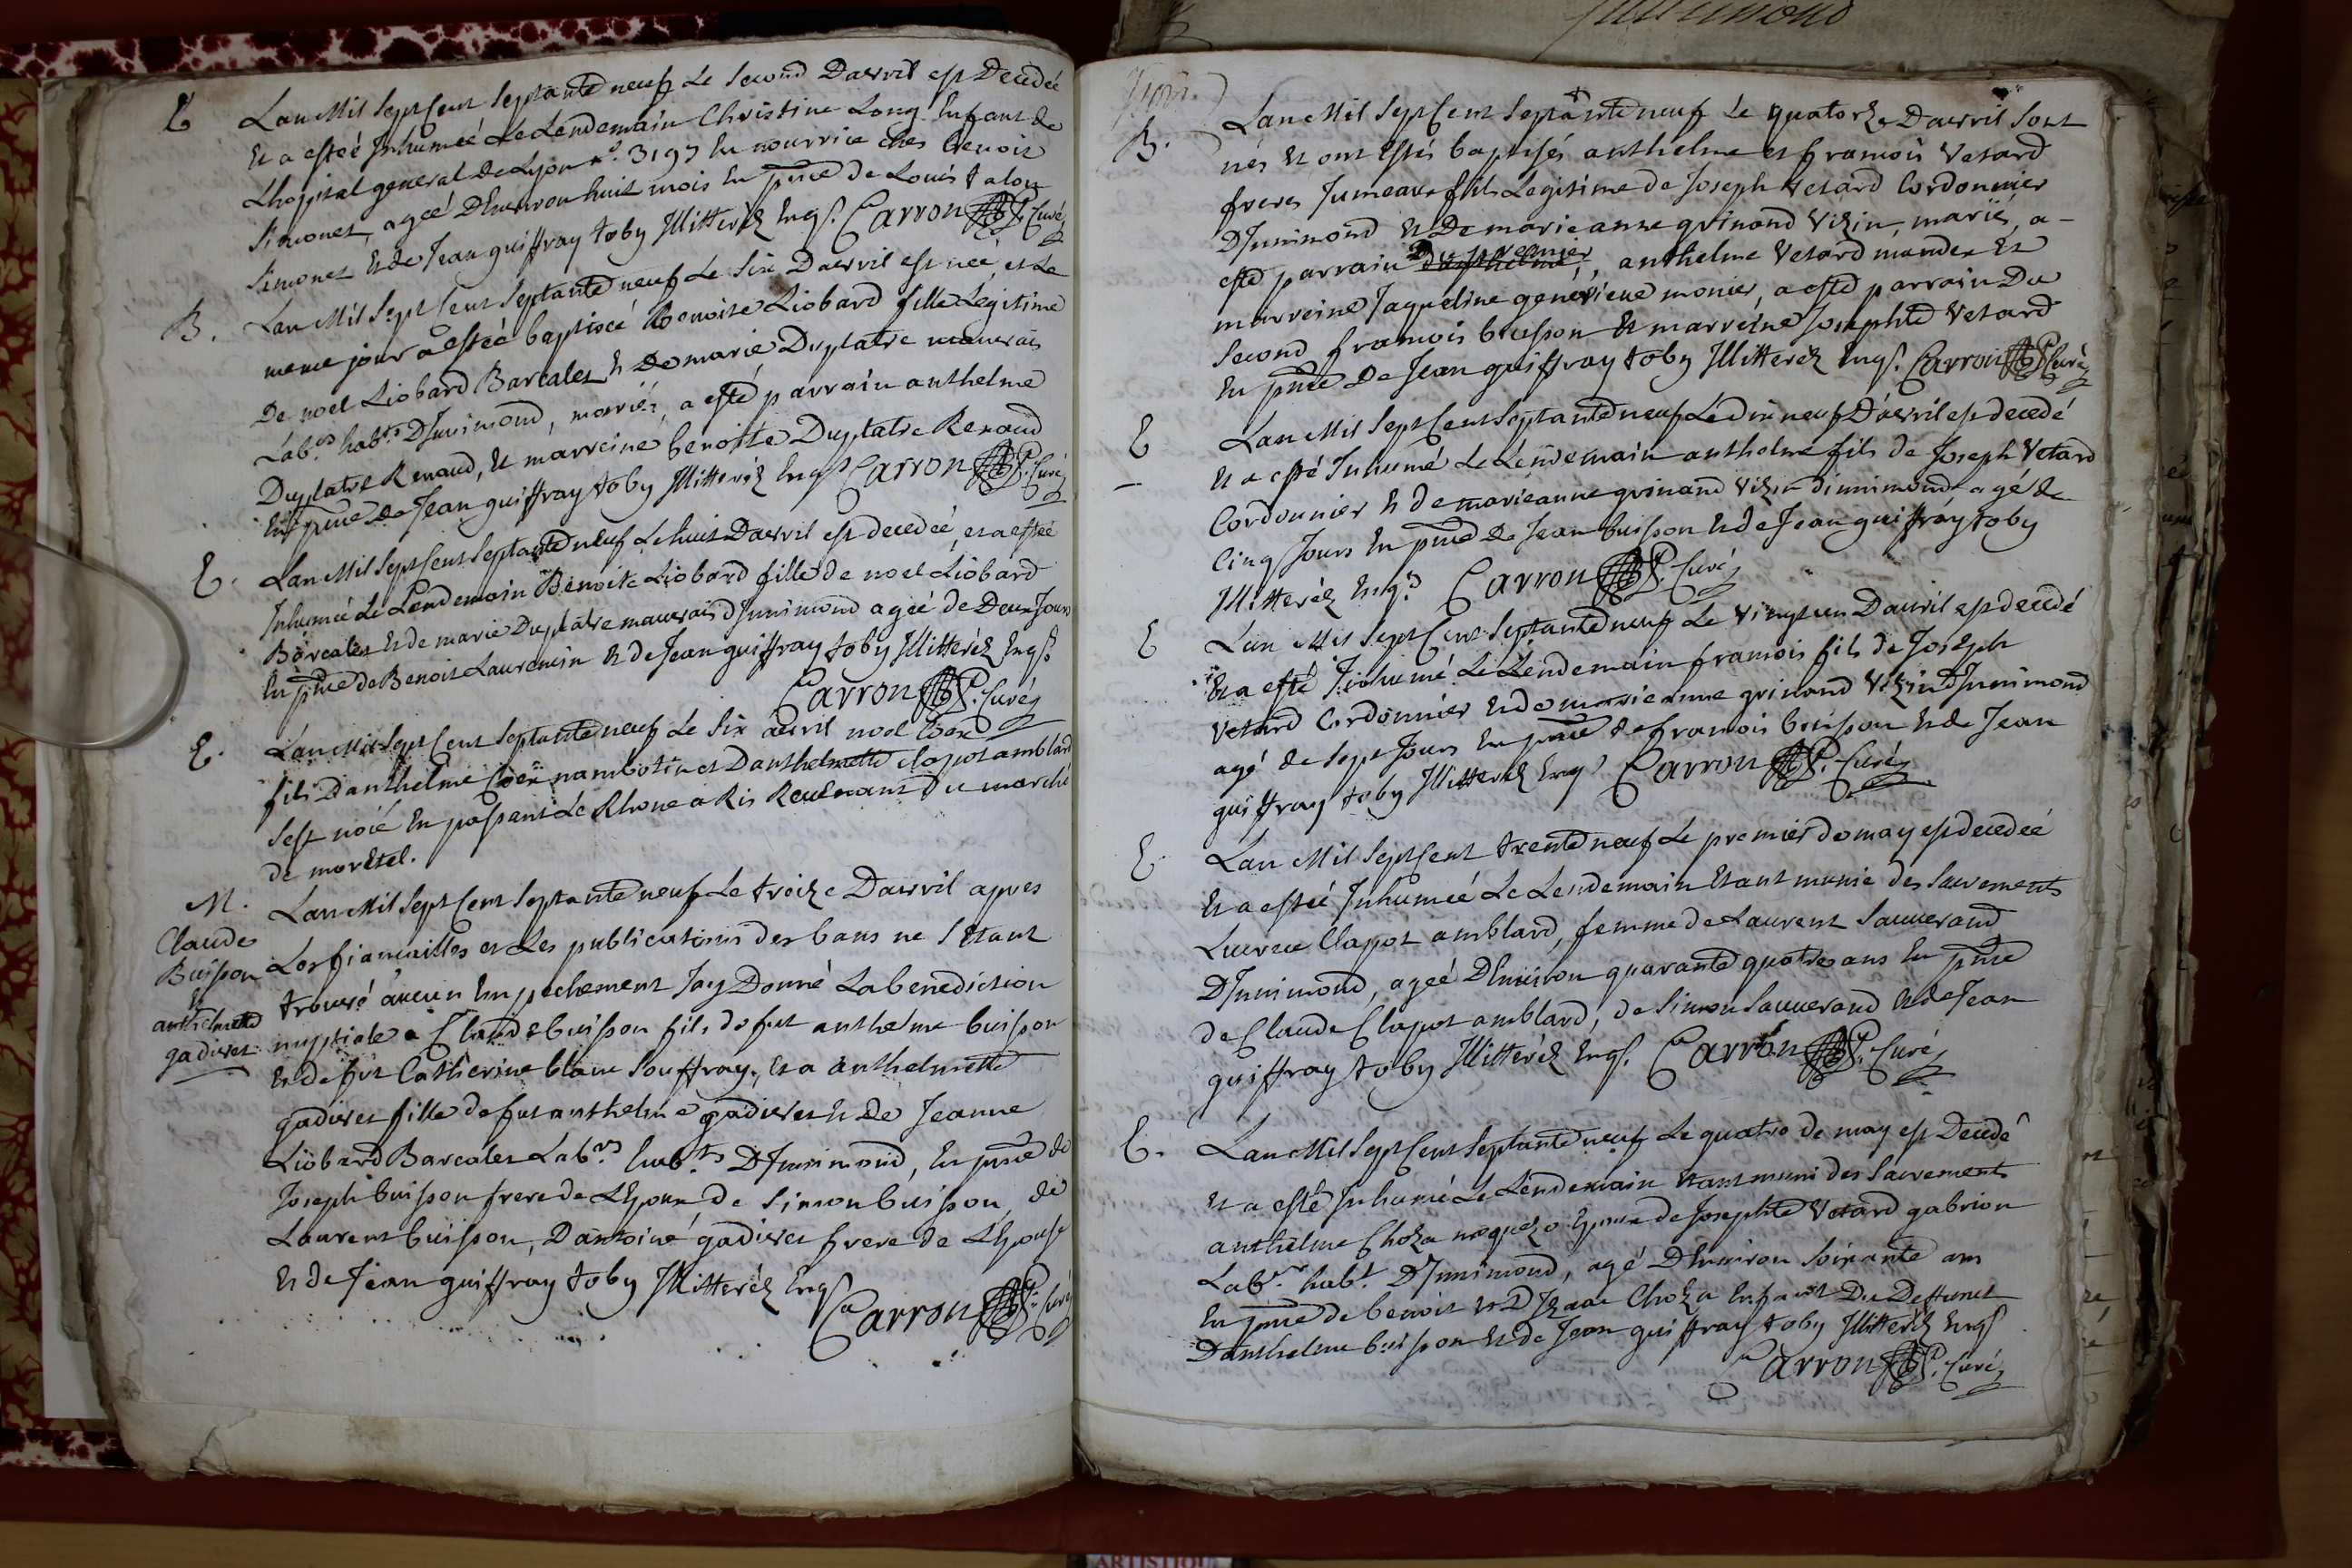 E
Lan Mil Sept Cent Septante neuf Le Second Davril est Decedée
Et a estée Inhumée Le Lendemain Christine Long Enfant de
Lhopital general de Lyon n.° 3197 En nourrice ches Benoit
Simonet, ageé D'Environ huit mois En pnce de Louis
Simonet et de Jean guiffray toby Illitterés Enqs. Carron Curé
B.
Lan Mil Sept Cent Septante neuf Le Six Davril est née, et Le
meme jour a estée baptiseé Benoite Liobard fille Legitime
De noel Liobard Barcalet & De marie Duplatre mauvais
Lab.rs hab.ts D'Innimond, mariés, a esté parrain anthelme
Duplatre Renaud, et marreine benoite Duplatre Renaud
En pnce de Jean guiffray toby Illitterés Enqs Carron Curé
E.
Lan Mil Sept Cent Septante neuf Le huit Davril est decedeé, et a estée
Inhumée Le Lendemain Benoite Liobard fille de noel Liobard
Barcalet et de marie Duplatre mauvais D'Innimond ageé de Deux Jours
En pnce de Benoit Laurencin et de Jean guiffray toby Illitterés Enqs.
Carron Curé
E.
Lan Mil Sept Cent Septante neuf Le Six avril noel
fils D'anthelme nambotin et Danthelmette clapot amblard
Sest noié En passant Le Rhone a Ris Revenant du marché
de morestel.
M.
Claude
Buisson
Et
anthelmette
gadivet
Lan Mil Sept Cent Septante neuf Le treize Davril apres
Les fiancailles et Les publications des bans ne S'Etant
trouvé aucun Empechement Jay Donné La benediction
nuptiale a Claude buisson fils de fut anthelme buisson
Et de fut Catherine blanc Souffray, Et a anthelmette
gadivet fille de fut anthelme gadivet & de Jeanne
Liobard Barcalet Lab.rs hab.ts D'Innimond, En pnce de
Joseph buisson frere de L'Epoux, de Simon buisson, de
Laurent buisson, D'antoine gadivet frere de L'Epouse
Et de Jean guiffray toby Illitterés Enqs
Carron Curé
B.
Lan Mil Sept Cent Septante neuf Le quatorze Davril Sont
nés Et ont Estés baptisés anthelme et francois Vetard
freres Jumeaux fils Legitime de Joseph Vetard Cordonnier
D'Innimond & De marie anne grinand Vizin, mariés, a
esté parrain du premier, anthelme Vetard mander Et
marreine Jaqueline genevieve monier, a esté parrain Du
Second francois buisson Et marreine Josephte Vetard
En pnce De Jean guiffray toby Illitterés Enqs. Carron Curé
E
Lan Mil Sept Cent Septante neuf Le Dix neuf D'avril est decedé
Et a esté Inhumé Le Lendemain anthelme fils de Joseph Vetard
Cordonnier & de marie anne grinand Vizin dinnimond agé de
Cinq Jours En pnce de Jean buisson Et de Jean guiffray toby
Illitterés Enqs Carron Curé
E
Lan Mil Sept Cent Septante neuf Le Vingt un Davril est decedé
Et a esté Inhumé Le Lendemain francois fils de Joseph
Vetard Cordonnier Et de marie anne grinand Vizin D'Innimond
agé de Sept Jours En pnce de francois buisson Et de Jean
guiffray toby Illitterés Enqs Carron Curé
E
Lan Mil Sept Cent trente neuf Le premier de may est decedeé
Et a estée Inhumée Le Lendemain Etant munie des Sacrements
Lucrece Clapot amblard, femme de Laurent Sauverand
D'Innimond, ageé D'Environ quarante quatre ans En pnce
de Claude Clapot amblard, de Simon Sauverand Et de Jean
guiffray toby Illitterés Enqs. Carron Curé
E.
Lan Mil Sept Cent Septante neuf Le quatre de may est Decedé
Et a esté Inhumé Le Lendemain Etant muni des Sacrements
anthelme Choza Epoux de Josephte Vetard gabrion
Lab.r hab.t D'Innimond, agé D'Environ Soixante ans
En pnce de benoit Et D'Izaac Choza Enfants Du Deffunct
D'anthelme buisson Et de Jean guiffray toby Illitterés Enqs
Carron Curé